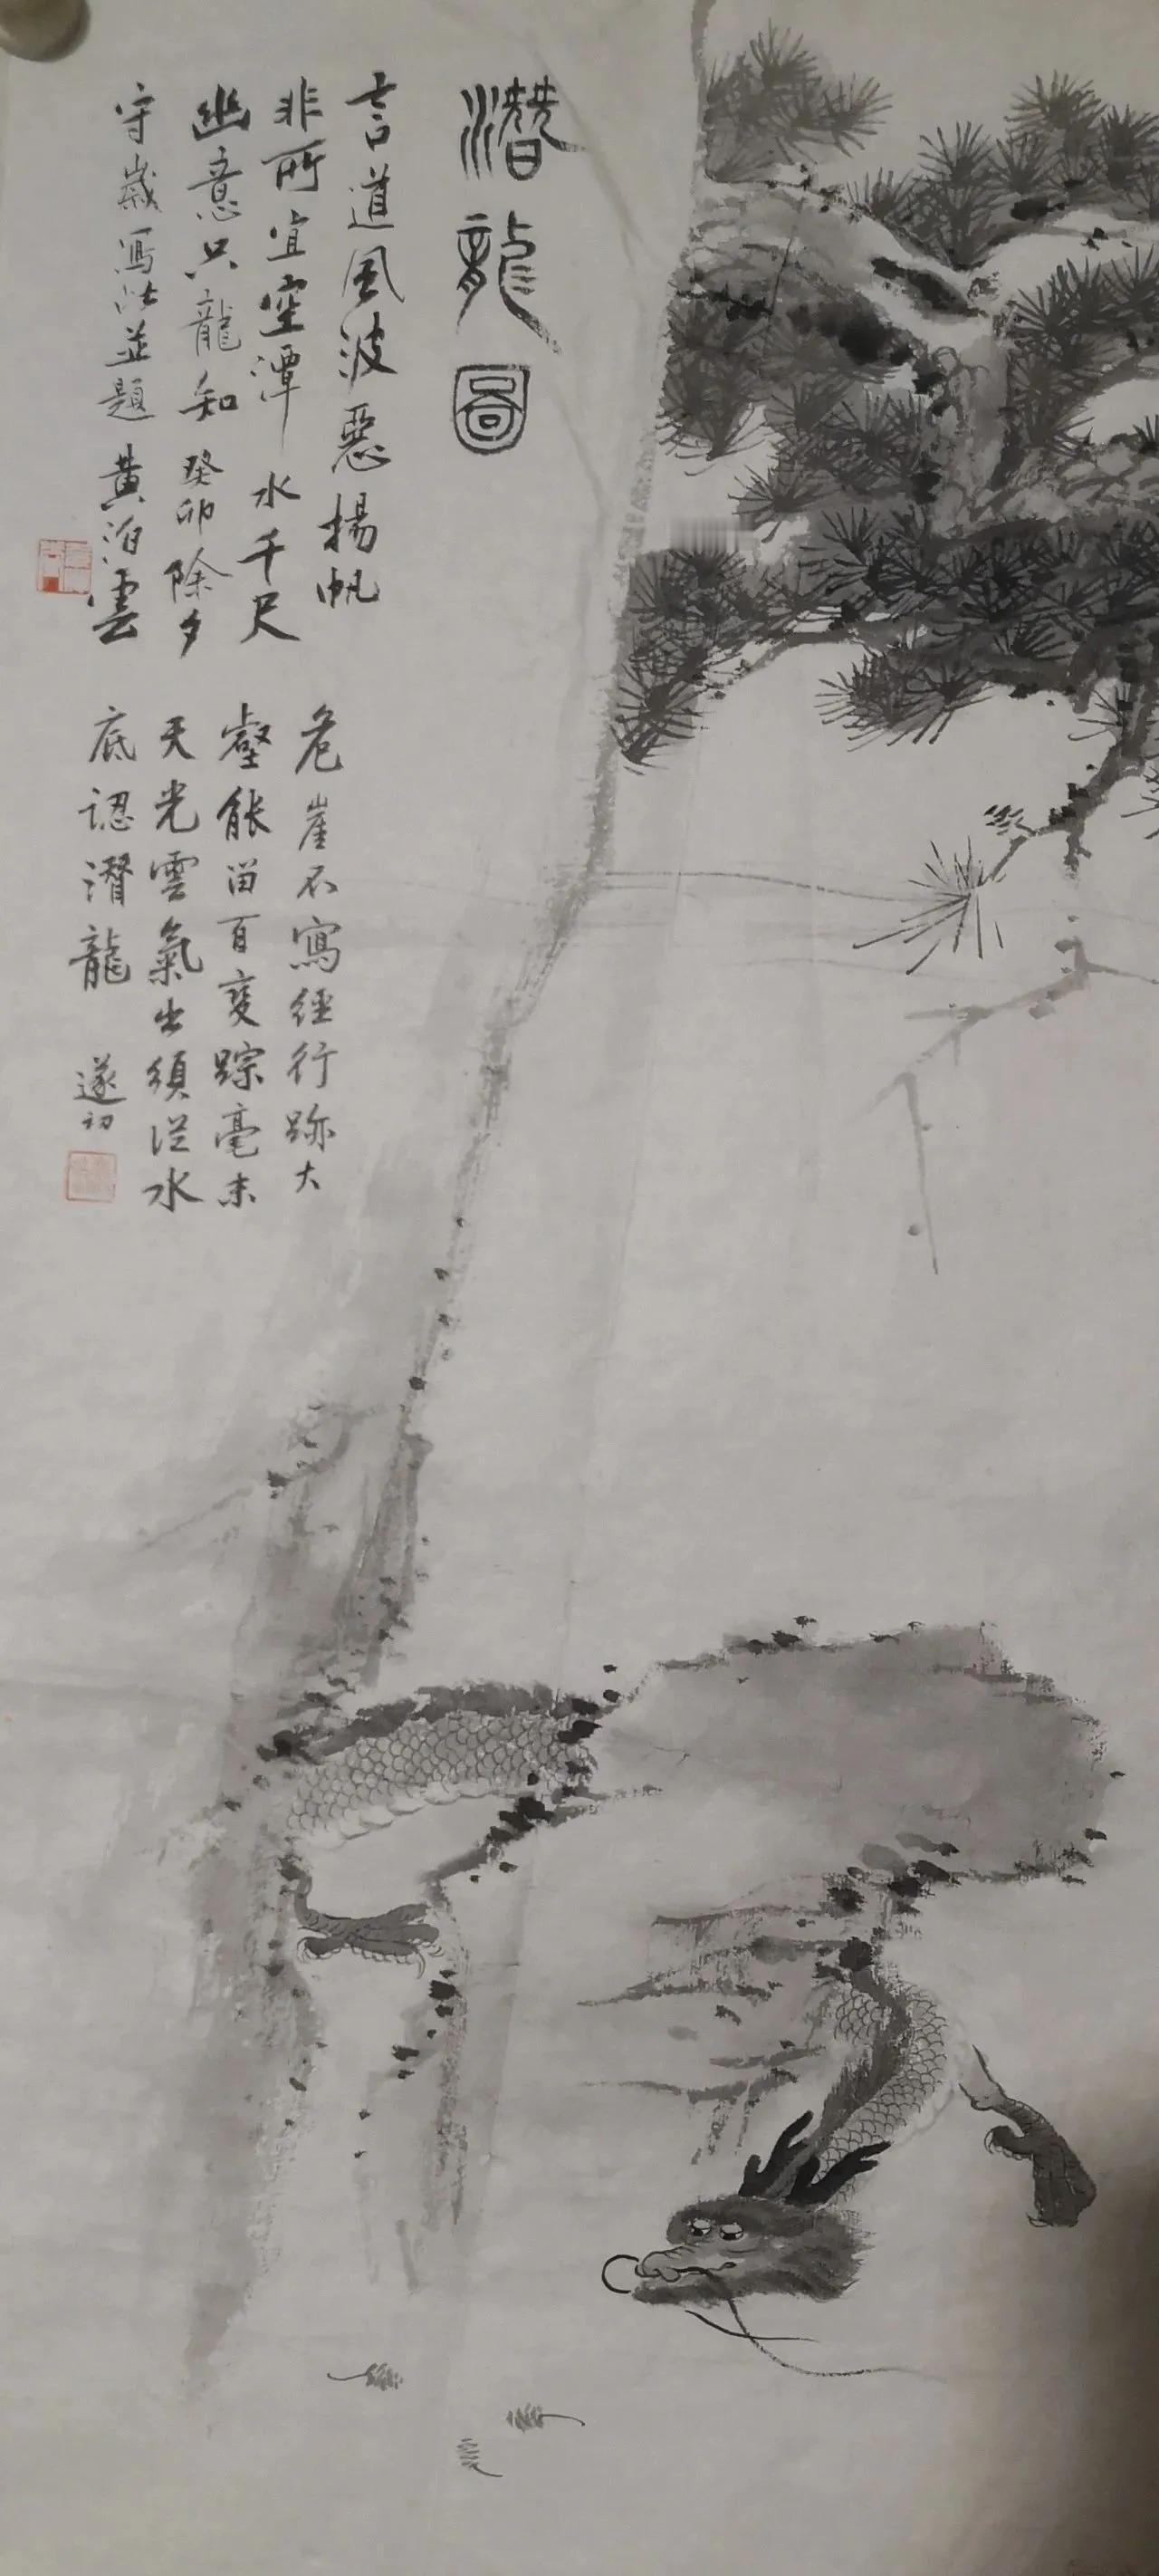 潛龍圖
言道風波惡揚帆
非所宜空潭水千尺
幽意只龍知癸卯除夕
守歲寫此並題黄泊雲
危崖不寫徑行跡大
壑能留百變踪毫末
天光雲氣出須從水
底認潛龍遂初